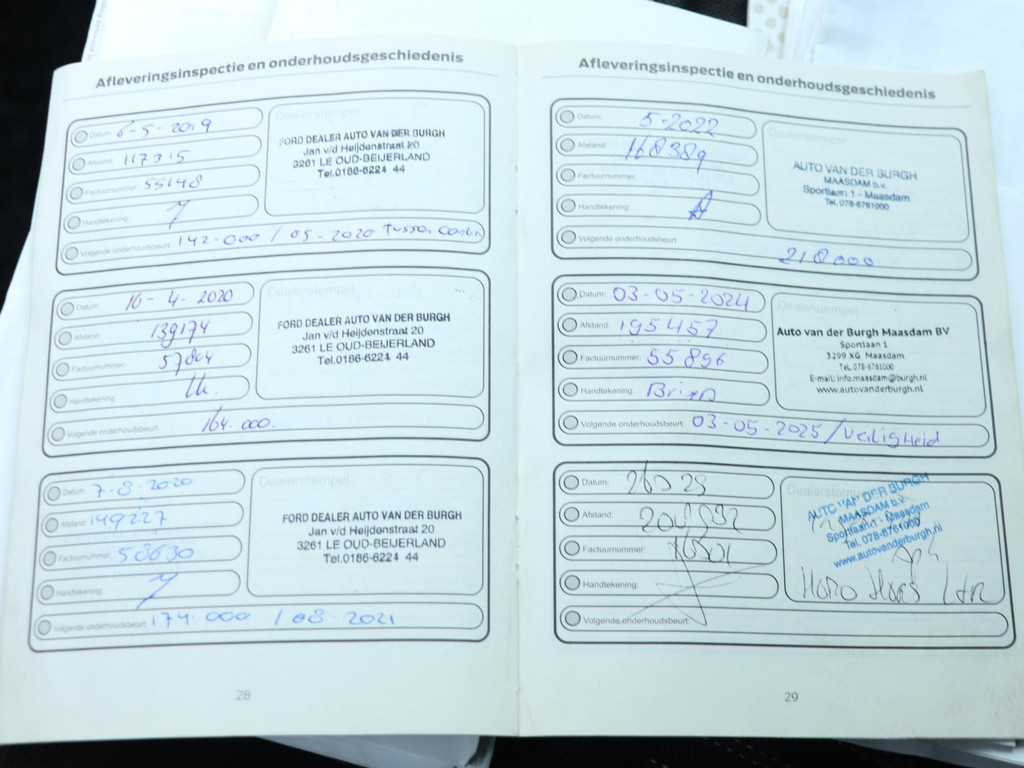 Afleveringsinspectie en onderhoudsgeschiedenis
Datum: 6-5-2019
Afstand: 117315
Factuurnummer: 55148
Handtekening:
Volgende onderhoudsbeurt: 142.000 / 05-2020 tussen
Dealerstempel:
FORD DEALER AUTO VAN DER BURGH
Jan v/d Heijdenstraat 20
3261 LE OUD-BEIJERLAND
Tel.0186-6224 44
Datum: 16-4-2020
Afstand: 139174
Factuurnummer: 57804
Handtekening:
Volgende onderhoudsbeurt: 164.000.
Dealerstempel:
FORD DEALER AUTO VAN DER BURGH
Jan v/d Heijdenstraat 20
3261 LE OUD-BEIJERLAND
Tel.0186-6224 44
Datum: 7-8-2020
Afstand: 149227
Factuurnummer: 58630
Handtekening:
Volgende onderhoudsbeurt: 174.000 / 08-2021
Dealerstempel:
FORD DEALER AUTO VAN DER BURGH
Jan v/d Heijdenstraat 20
3261 LE OUD-BEIJERLAND
Tel.0186-6224 44
28
Afleveringsinspectie en onderhoudsgeschiedenis
Datum: 5-2022
Afstand: 168389
Factuurnummer:
Handtekening:
Volgende onderhoudsbeurt: 218000
Dealerstempel:
AUTO VAN DER BURGH
MAASDAM b.v.
Sportlaan 1 - Maasdam
Tel. 078-6761000
Datum: 03-05-2024
Afstand: 195457
Factuurnummer: 55896
Handtekening:
Volgende onderhoudsbeurt: 03-05-2025/veiligheid
Dealerstempel:
Auto van der Burgh Maasdam BV
Sportlaan 1
3299 XG Maasdam
Tel. 078-6761000
E-mail: info.maasdam@burgh.nl
www.autovanderburgh.nl
Datum:
Afstand:
Factuurnummer:
Handtekening:
Volgende onderhoudsbeurt:
Dealerstempel:
AUTO VAN DER BURGH
MAASDAM b.v.
Sportlaan 1 - Maasdam
Tel. 078-6761000
www.autovanderburgh.nl
29